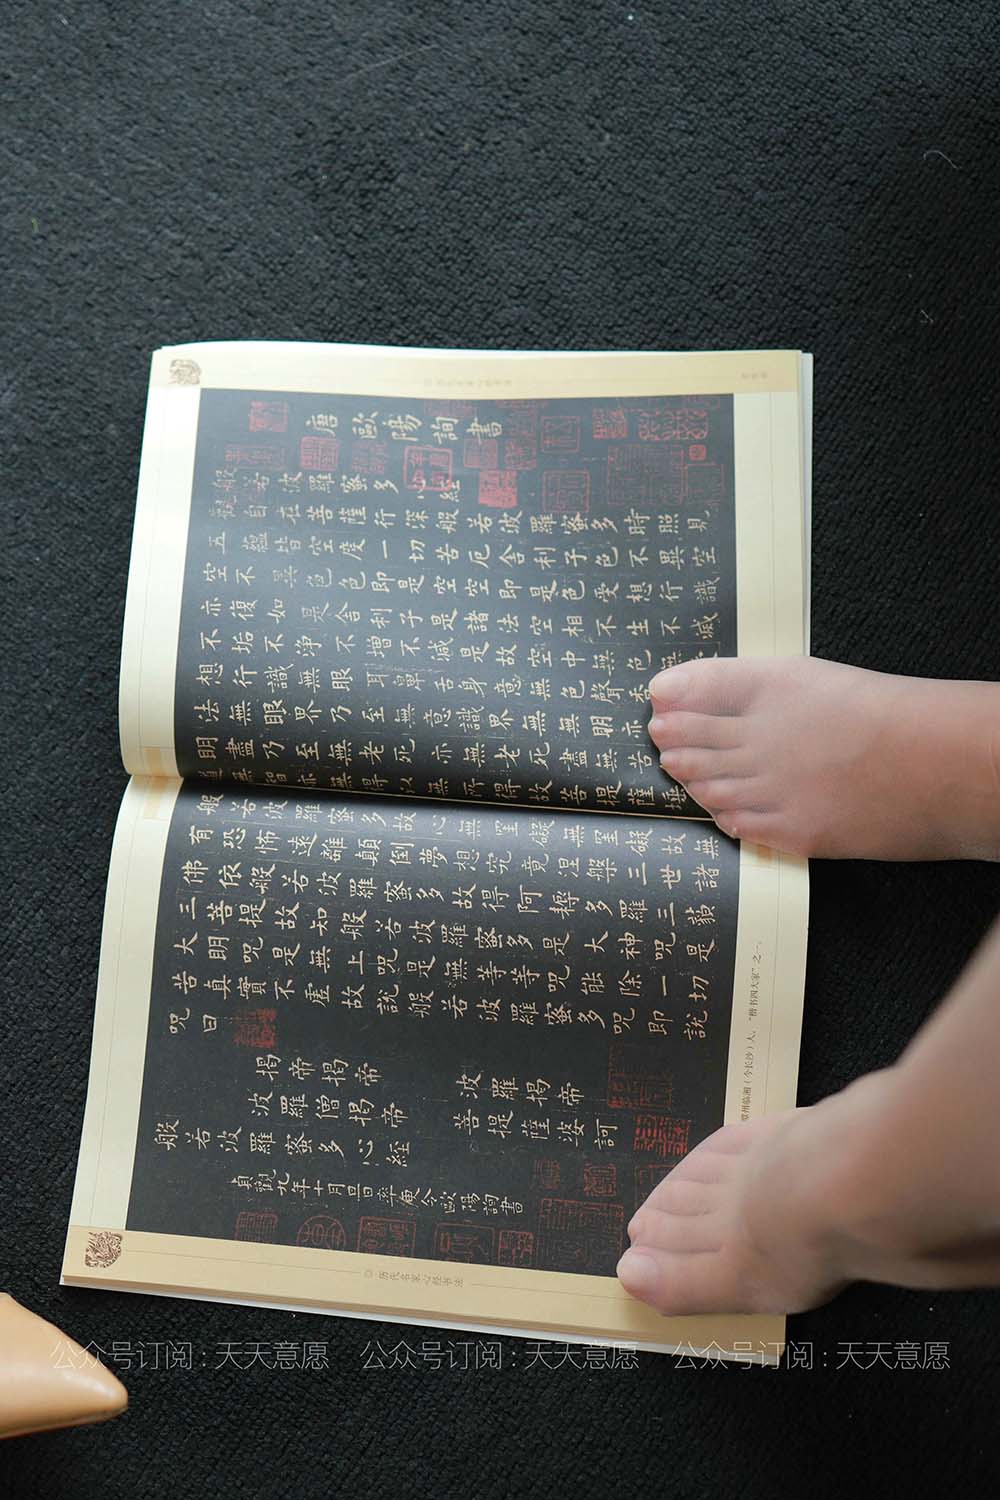 唐歐陽詢書
般若波羅蜜多心經
觀自在菩薩行深般若波羅蜜多時照見
五蘊皆空度一切苦厄舍利子色不異空
空不異色色即是空空即是色受想行識
亦復如是舍利子是諸法空相不生不滅
不垢不淨不增不減是故空中無色
想行識無眼耳鼻舌身意無色聲香
法無眼界乃至無意識界無無明亦
明盡乃至無老死亦無老死盡無苦
道無智亦無得以無所得故菩提薩埵
般若波羅蜜多故心無罣礙無罣礙故無
有恐怖遠離顛倒夢想究竟涅槃三世諸
佛依般若波羅蜜多故得阿耨多羅三藐
三菩提故知般若波羅蜜多是大神咒是
大明咒是無上咒是無等等咒能除一切
苦真實不虛故說般若波羅蜜多咒即說
咒曰
揭帝揭帝 波羅揭帝
波羅僧揭帝 菩提薩婆訶
般若波羅蜜多心經
貞觀九年十月旦日率更令歐陽詢書
潭州临湘（今长沙）人，“楷书四大家”之一。
历代名家心经书法
公众号订阅：天天意愿 公众号订阅：天天意愿 公众号订阅：天天意愿